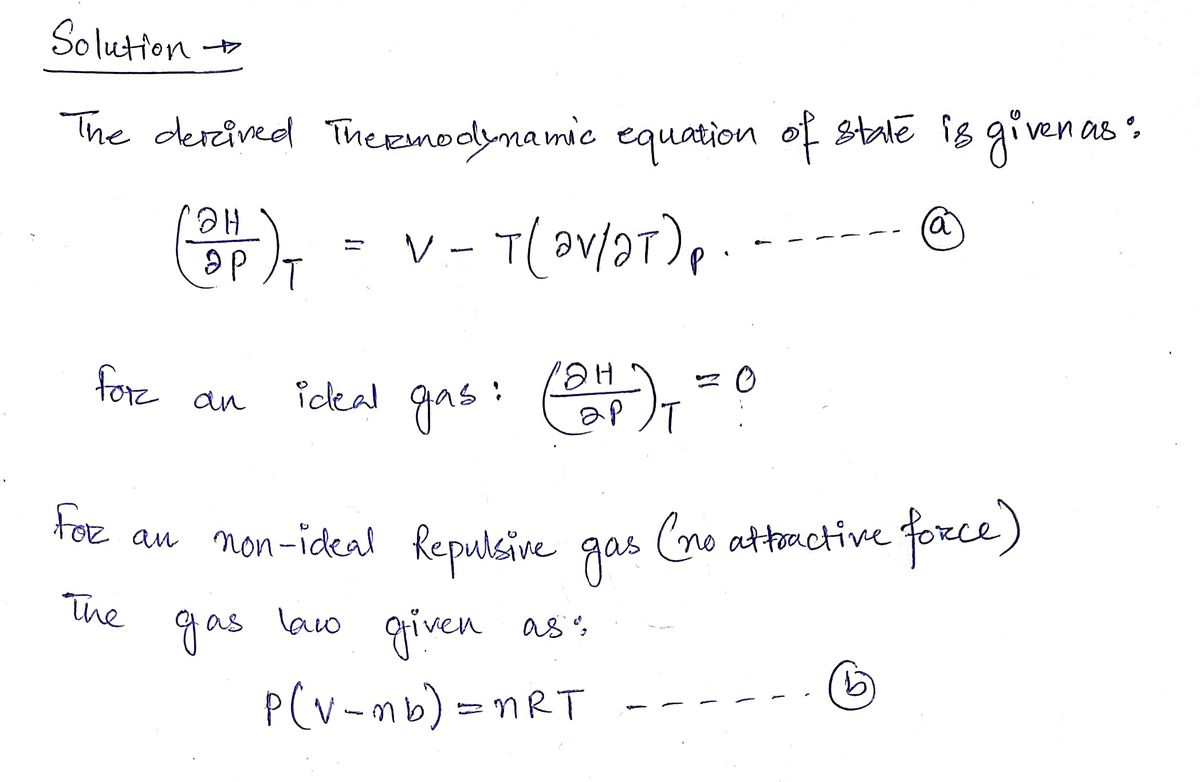 Solution →
The derived Thermodynamic equation of state is given as :
(∂H/∂P)_T = V - T(∂V/∂T)_P . ------- (a)
for an ideal gas : (∂H/∂P)_T = 0
For an non-ideal Repulsive gas (no attractive force)
The gas law given as :
P(V-nb) = nRT ------- (b)